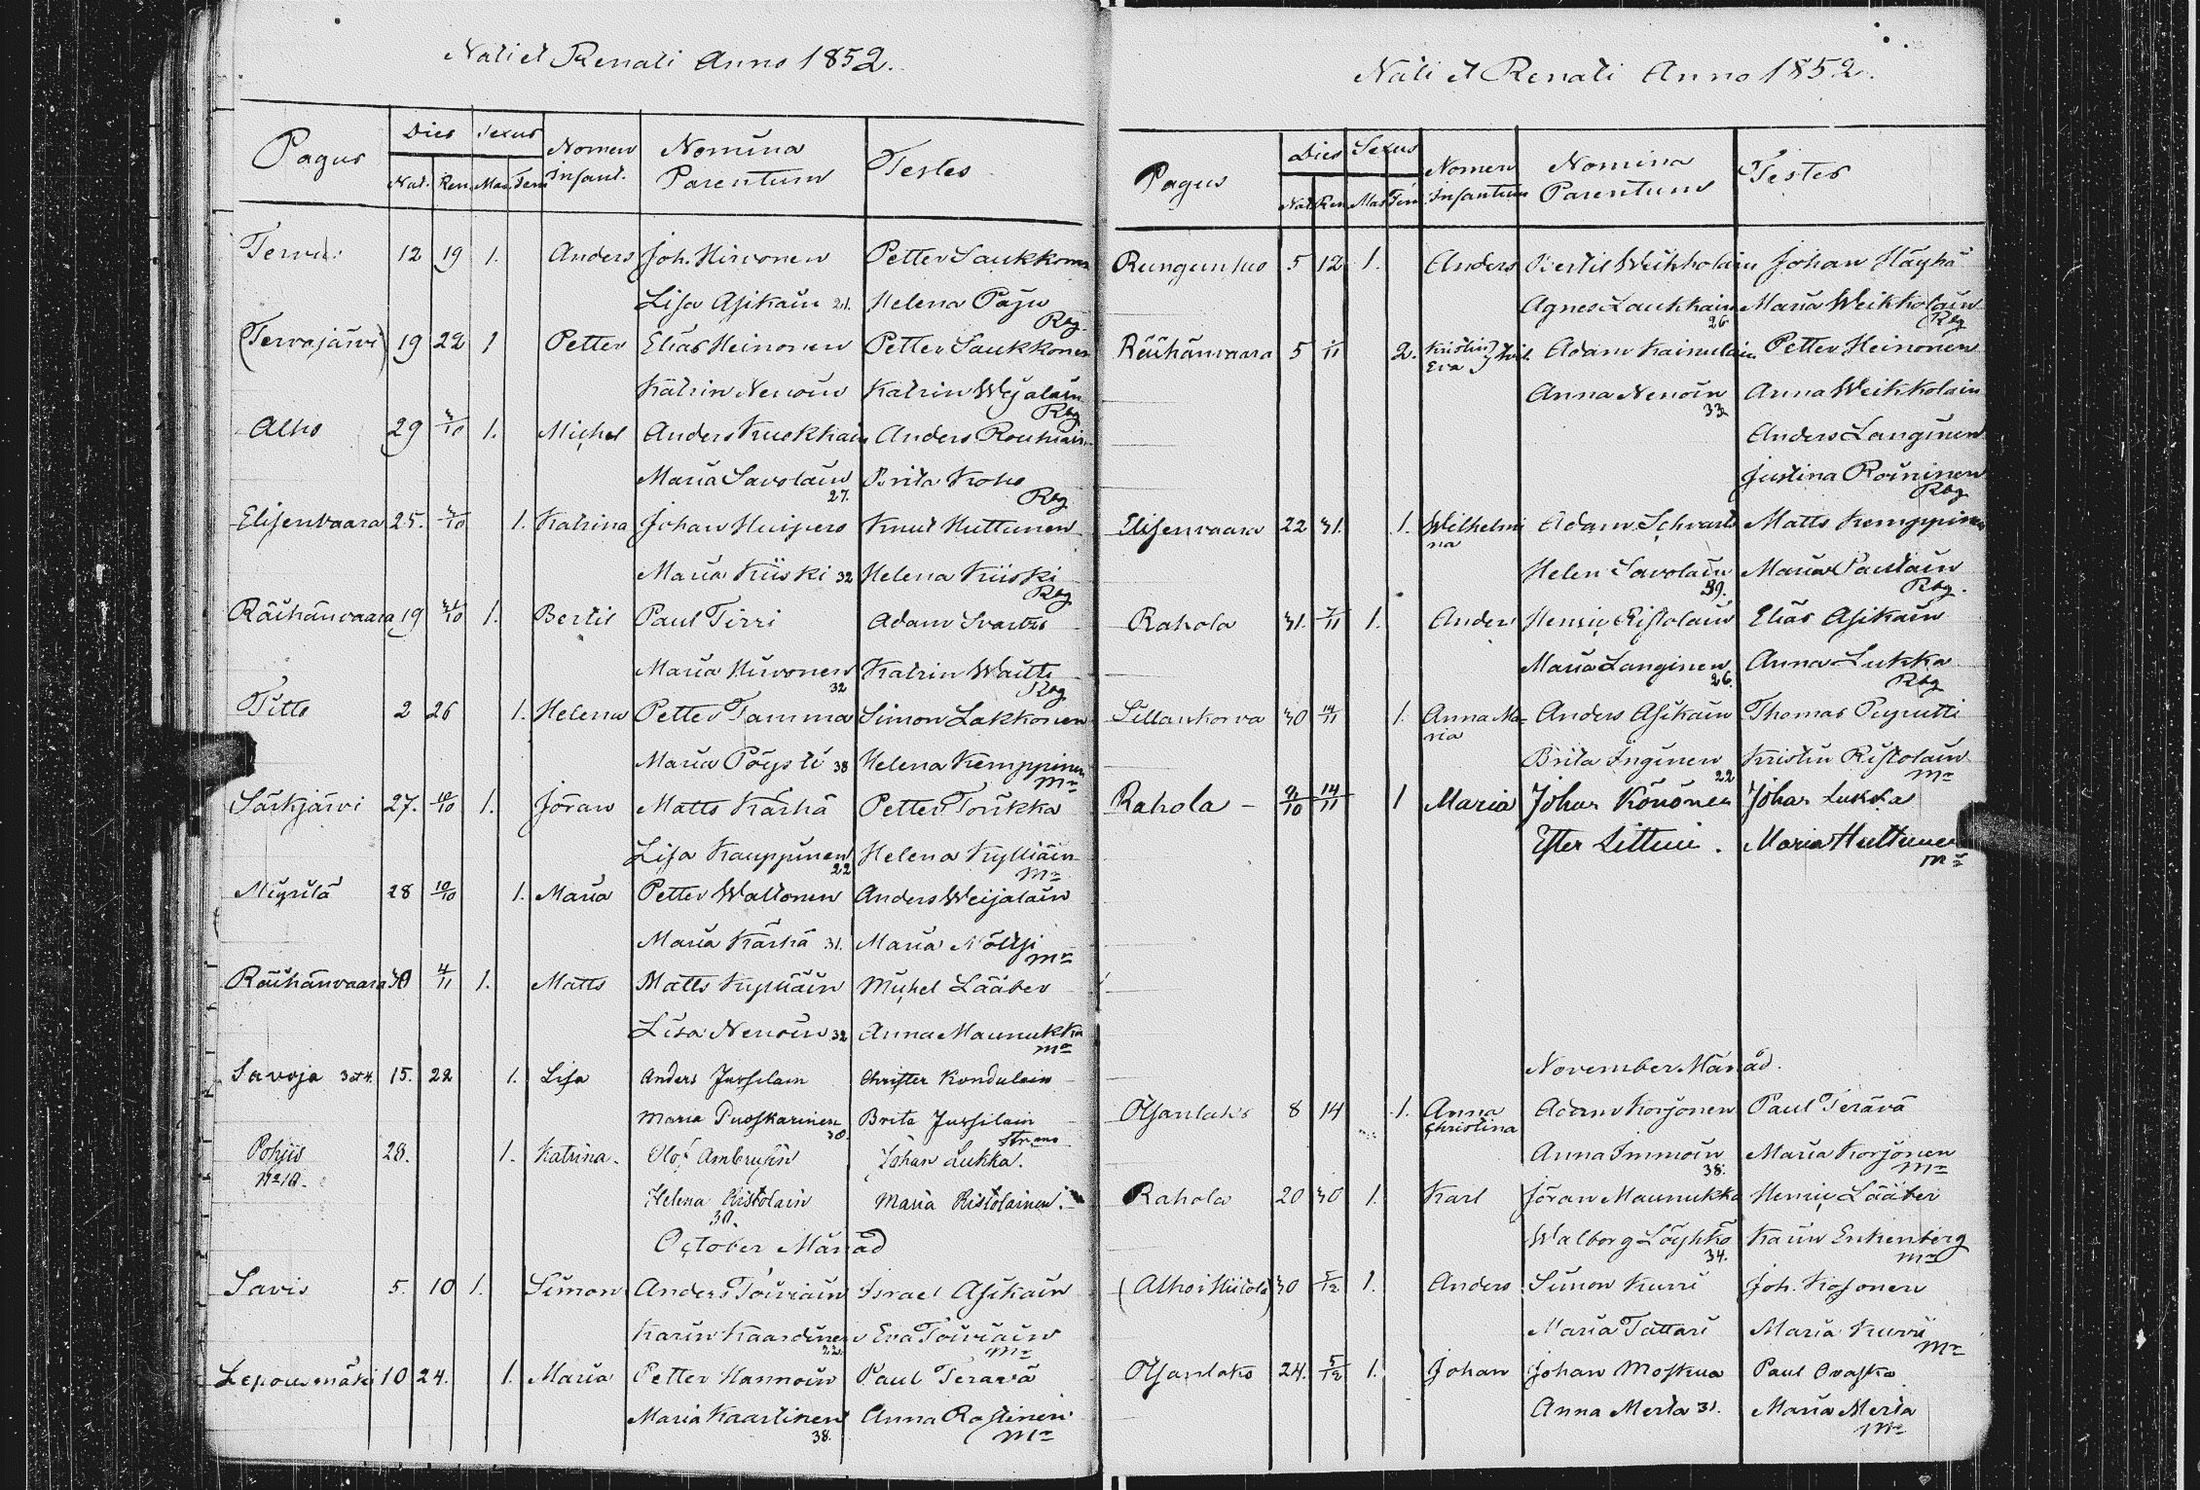 Nati et Renati Anno 1852.
Pagus Dies Sexus Nomen Infant. Nomina Parentum Testes
Nat. Ren. Mas. Fem.
Tervu 12 19 1. Anders Joh. Hirvonen Petter Saukkonen
Lisa Asikain 21. Helena Paju
Rbg.
(Tervajärvi) 19 22 1 Petter Elias Heinonen Petter Saukkonen
Katrin Nenoin Katrin Wejalain
Rbg
Alho 29 3/10 1. Michel Anders Kuokkain Anders Rouhiain
Maria Savolain 27. Brita Koho
Rbg
Elisenvaara 25. 3/10 1. Katrina Johan Huipero Knut Huttunen
Maria Kiiski 32 Helena Kiiski
Rbg
Räihänvaara 19 1. Bertil Paul Tirri Adam Svartz
Maria Hirvonen 32 Katrin Waitti
Rbg
Titto 2 26 1. Helena Petter Tamma Simon Lakkonen
Maria Pöysti 38 Helena Kemppinen
Mn
Särkjärvi 27. 10/10 1. Jöran Matts Kärhä Petter Torikka
Lisa Kauppinen 22 Helena Kylliäin
Mn
Miyrilä 28 10/10 1. Maria Petter Waltonen Anders Weijalain
Maria Kärhä 31. Maria Nöltsi
Mn
Räihänvaara 30 4/11 1. Matts Matts Kylliäin Michel Lääber
Lisa Nenoin 32 Anna Maunukka
Mn
Savoja 3 et 4. 15. 22 1. Lisa Anders Jussilain Christer Kondulain
Maria Puoskarinen 30 Brita Jussilain
Pohjis 28. 1. Katrina. Olof Ambrusin Johan Lukka.
No 12.
Helena Ristolain 30. Maria Ristolainen.
October Månad
Savis 5. 10 1. Simon Anders Toiviain Israel Asikain
Karin Kaardinen 22. Eva Toiviain
Mn
Lepousmäki 10 24. 1. Maria Petter Hannoin Paul Terävä
Maria Kaartinen 38. Anna Rastinen
Mn
Nati et Renati Anno 1852.
Pagus Dies Sexus Nomen Infantum Nomina Parentum Testes
Nat. Ren. Mas Fem.
Rungunluo 5 12 1. Anders Bertil Weikkolain Johan Häyhä
Agnes Laukkain 26 Maria Weikkolain
Rbg
Räihänvaara 5 2. Kristin Adam Kaimulain Petter Heinonen
Eva
Anna Nenoin 33 Anna Weikkolain
Anders Langinen
Justina Roininen
Rbg
Elisenvaara 22 31. 1. Wilhelmi Adam Schvarts Matts Kemppinen
na
Helen Savolain 39. Maria Paulain
Rbg.
Rahola 31. 7/11 1. Anders Henric Ristolain Elias Asikain
Maria Langinen 26. Anna Lukka
Rbg
Sillankorva 30 14/11 1. Anna Ma- Anders Asikain Thomas Puputti
ria
Brita Inginen 22 Kristin Ristolain
Mn
Rahola - 14/11 1 Maria Johan Könönen Johan Lukka
Ester Littui. Maria Huttunen
Mn
November Månad.
Otsanlaks 8 14 1. Anna Adam Korjonen Paul Terävä
Christina
Anna Immoin 38. Maria Korjonen
Mn
Rahola 20 30 1. Karl Jöran Maunukka Henric Lääbei
Walborg Löyhkö 34. Kaiin Enkenberg
Mn
(Alhoi Hiitola) 30 5/12 1. Anders Simon Kurri Joh. Kosonen
Maria Tattari Maria Kurri
Mn
Otsanlaks 24. 5/12 1. Johan Johan Moskua Paul Ovaska
Anna Merta 31. Maria Merta
Mn